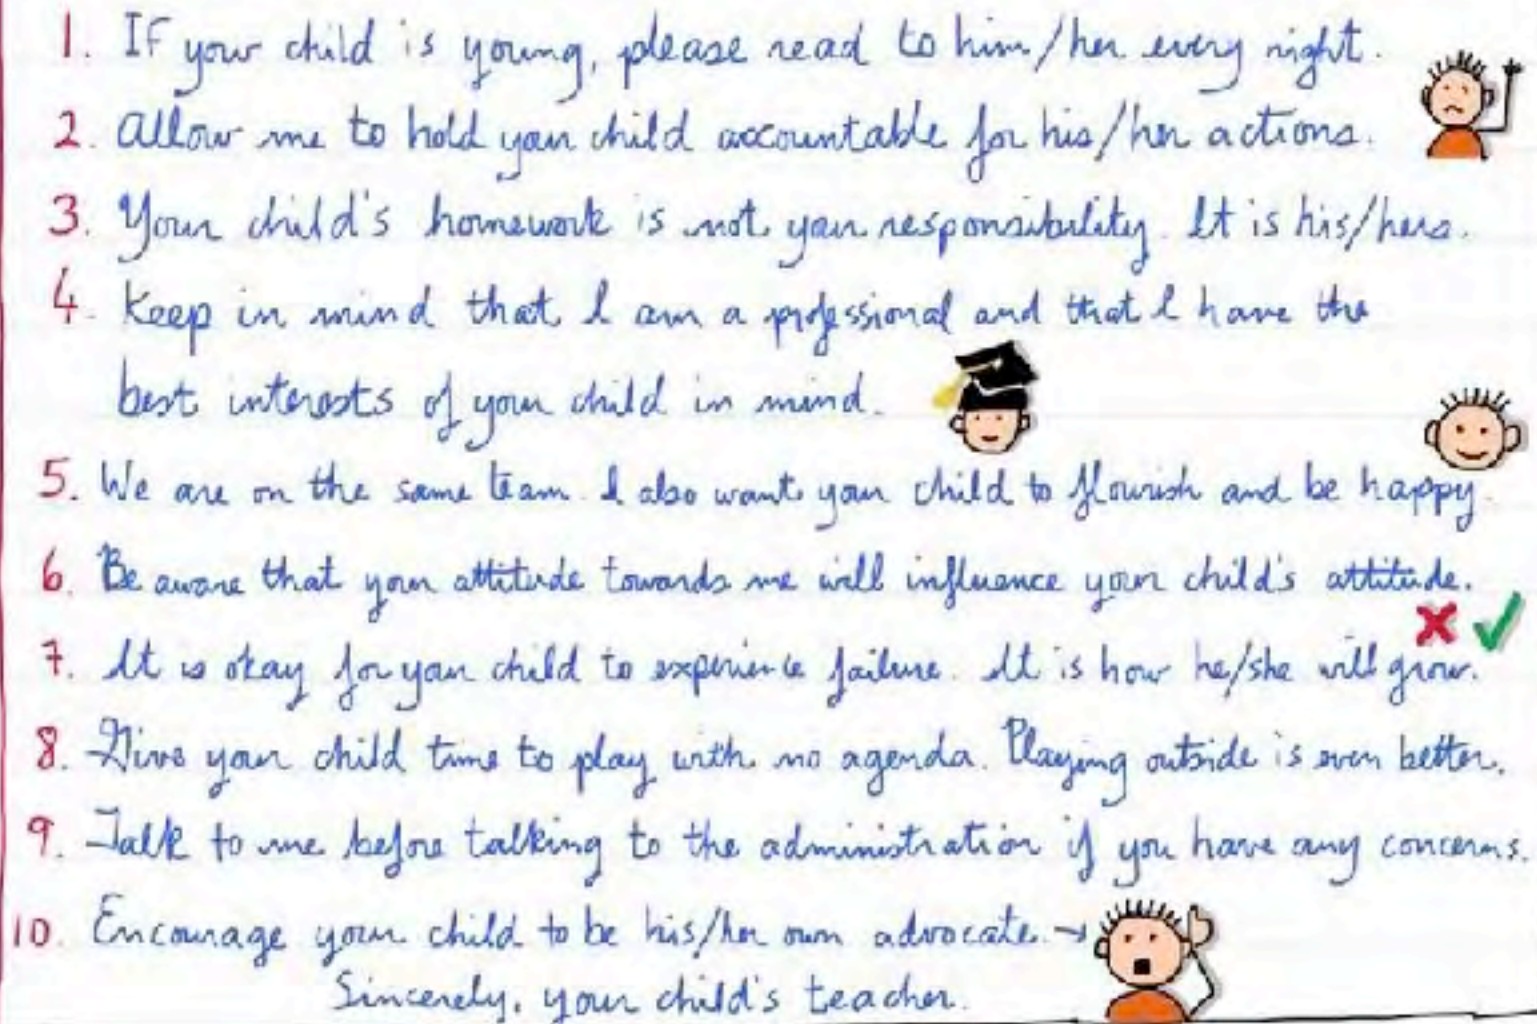 1. If your child is young, please read to him/her every night.
2. Allow me to hold your child accountable for his/her actions.
3. Your child's homework is not your responsibility. It is his/hers.
4. Keep in mind that I am a professional and that I have the
best interests of your child in mind.
5. We are on the same team. I also want your child to flourish and be happy.
6. Be aware that your attitude towards me will influence your child's attitude.
7. It is okay for your child to experience failure. It is how he/she will grow.
8. Give your child time to play with no agenda. Playing outside is even better.
9. Talk to me before talking to the administration if you have any concerns.
10. Encourage your child to be his/her own advocate. →
Sincerely, your child's teacher.